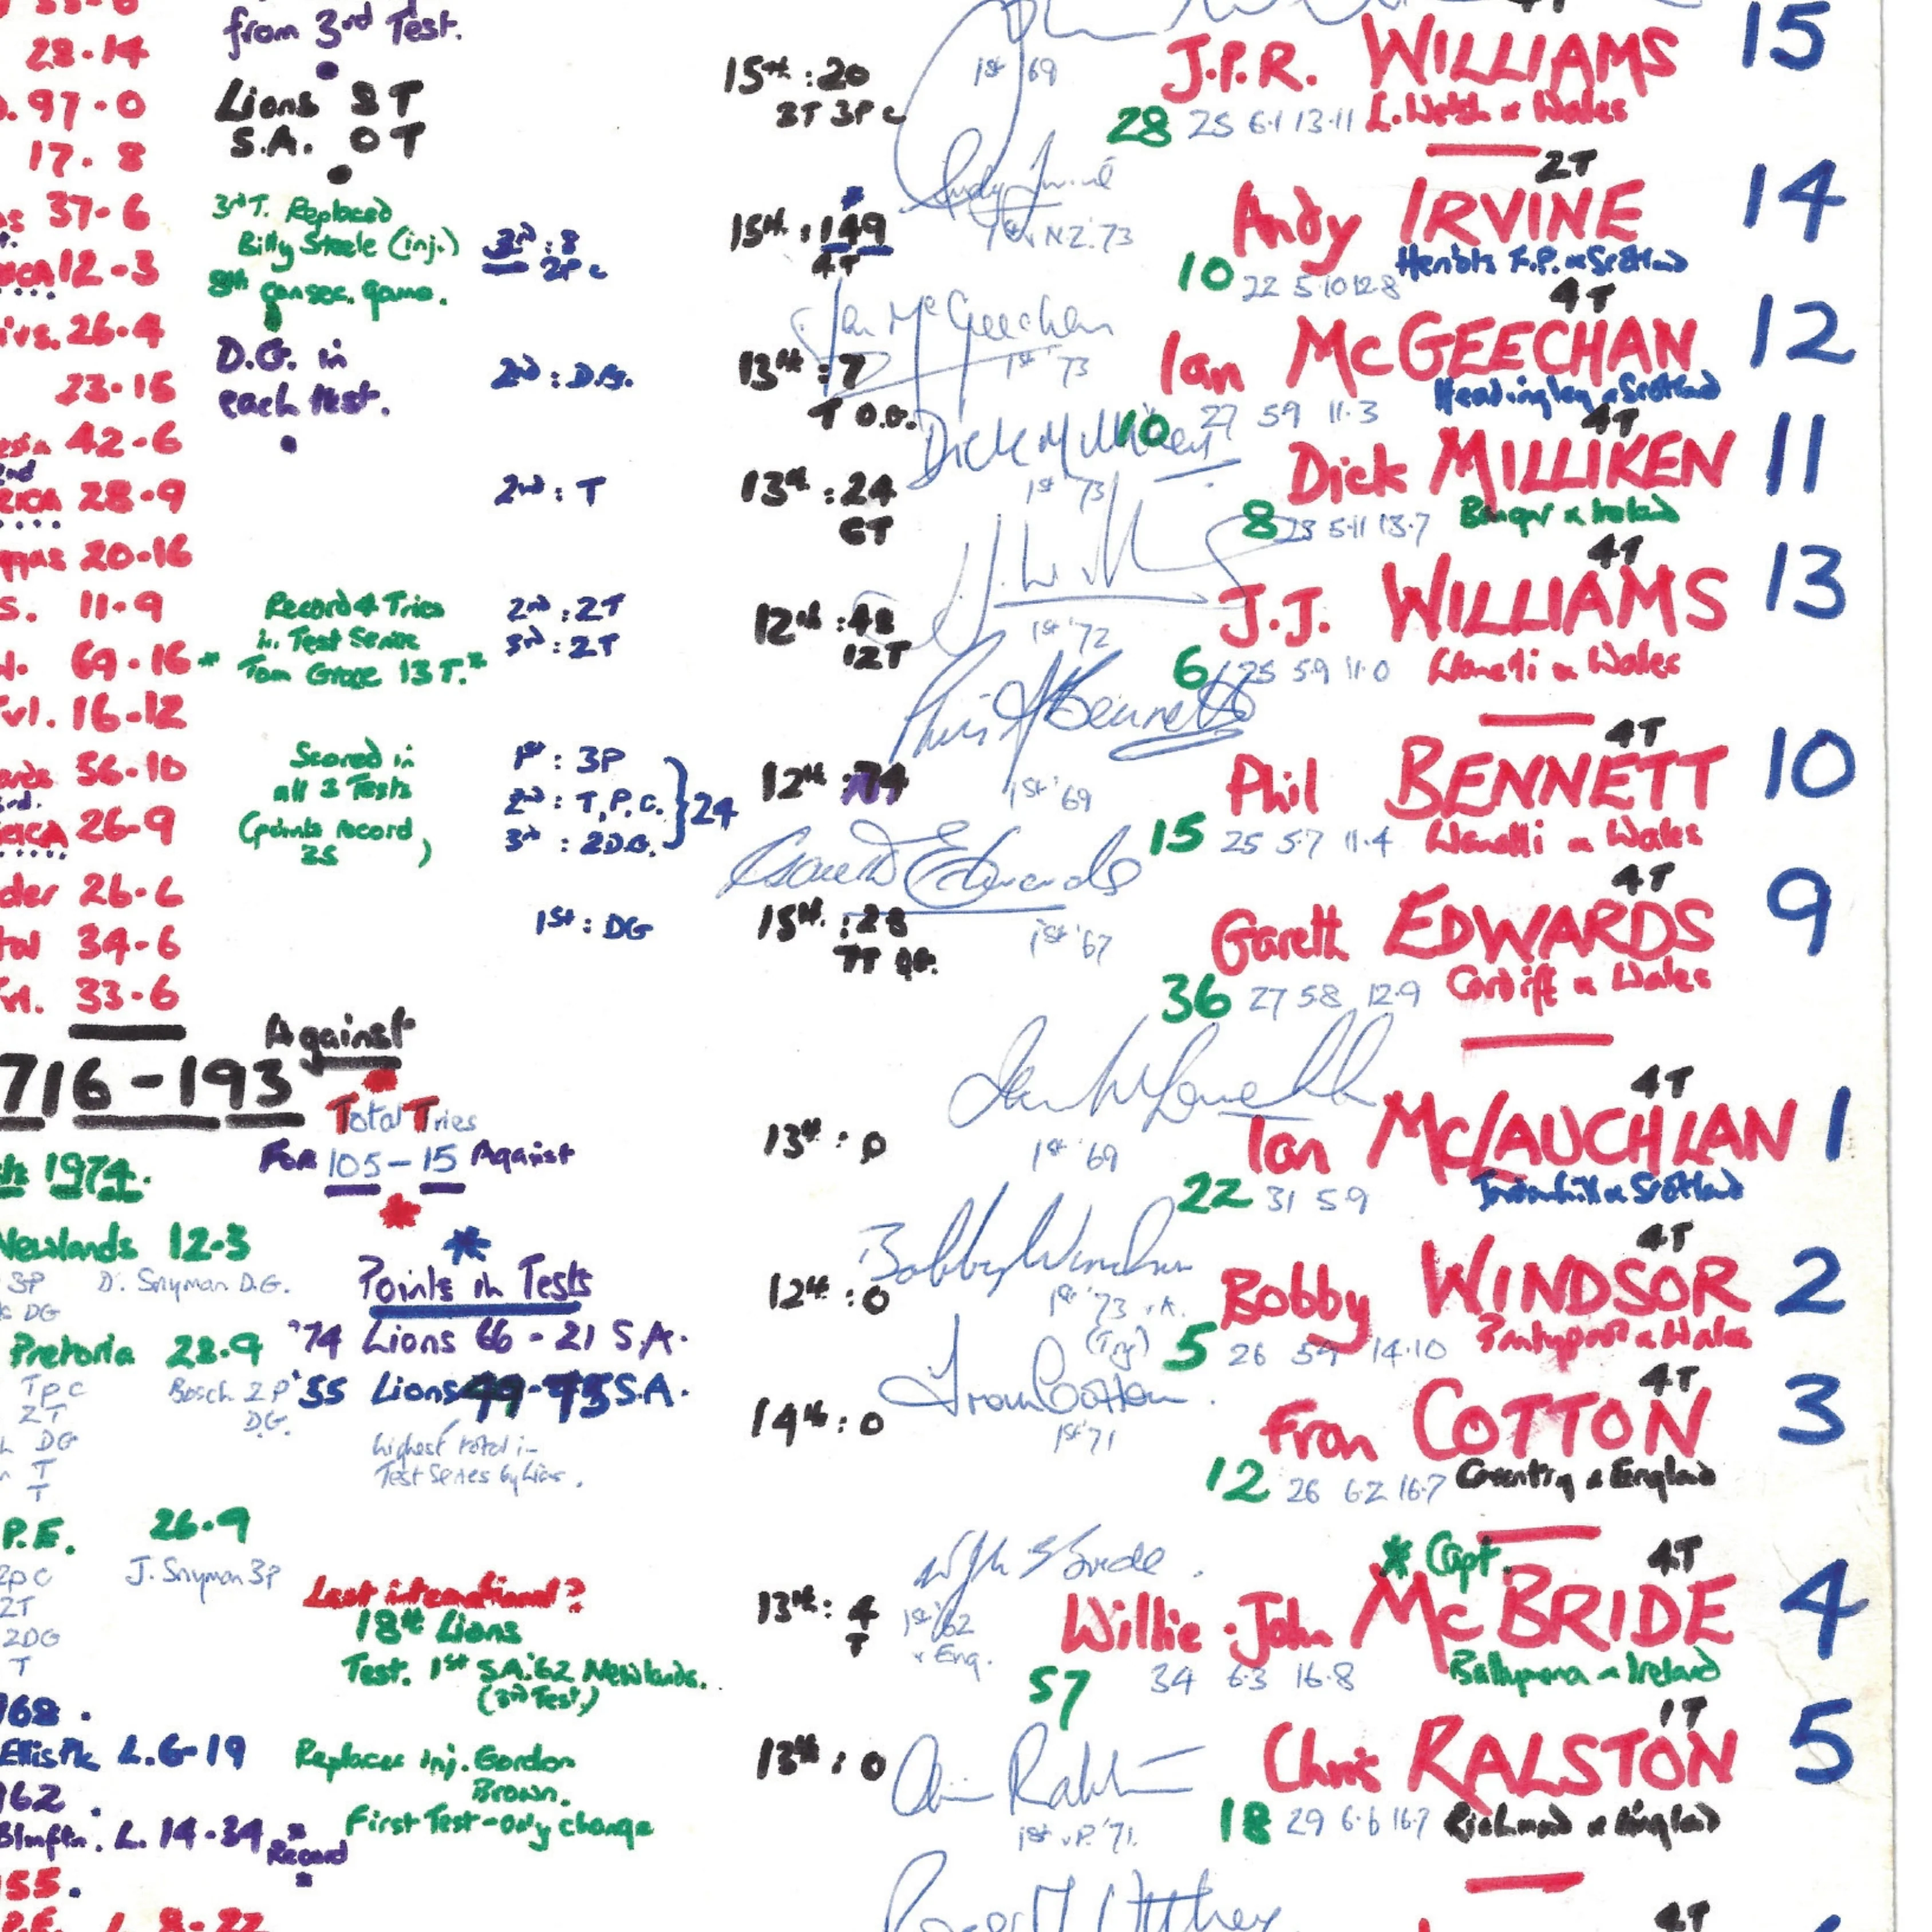 28·14
from 3rd Test.
15
J.P.R. WILLIAMS
15th : 20
1st '69
97·0
Lions 8T
S.A. 0T
28 25 6·1 13·11 L. Welsh & Wales
17·8
2T
14
Andy IRVINE
37·6
3rd T. Replaced
Billy Steele (inj.)
8th consec. game.
3rd : 8
2P c
15th : 149
4T
NZ. '73
10 22 5·10 12·8 Heriots F.P. & Scotland
12·3
4T
12
Ian McGEECHAN
Ian McGeechan
26·4
D.G. in
each test.
2nd : D.G.
13th : 7
1st '73
Headingley & Scotland
23·15
T D.G.
10 27 5·9 11·3
42·6
4T
11
Dick MILLIKEN
Dick Milliken
28·9
2nd : T
13th : 24
6T
1st '73
8 23 5·11 13·7 Bangor & Ireland
20·16
4T
13
J.J. WILLIAMS
11·9
Record 4 Tries
in Test Series
Tom Grace 13 T.*
2nd : 2T
3rd : 2T
12th : 48
12T
1st '72
69·16 *
6 25 5·9 11·0 Llanelli & Wales
Tvl. 16·12
4T
10
Phil BENNETT
Phil Bennett
56·10
Scored in
all 3 Tests
(points record
25)
1st : 3P
2nd : T, P, C.
3rd : 2D.G.
} 24
12th : 74
1st '69
26·9
15 25 5·7 11·4 Llanelli & Wales
26·6
4T
9
Gareth EDWARDS
Gareth Edwards
34·6
1st : DG
15th : 28
1st '67
33·6
36 27 5·8 12·9 Cardiff & Wales
Against
716 - 193
Total Tries
For 105 - 15 Against
4T
1
Ian McLAUCHLAN
13th : 0
1st '69
22 31 5·9 Jordanhill & Scotland
1974.
Newlands 12·3
3P D. Snyman D.G.
DG
4T
2
Bobby WINDSOR
Bobby Windsor
12th : 0
1st '73
(Try)
5 26 5·9 14·10 Pontypool & Wales
Points in Tests
'74 Lions 66 - 21 S.A.
Pretoria 28·9
T P C
2T
DG
T
T
Bosch 2P
DG.
'55 Lions 49 - 75 S.A.
highest total in
Test Series by Lions.
4T
3
Fran COTTON
Fran Cotton
14th : 0
1st '71
12 26 6·2 16·7 Coventry & England
P.E. 26·9
2P C
2T
2DG
T
J. Snyman 3P
* Capt.
4T
4
Willie-John McBRIDE
Last international?
18th Lions
Test. 1st S.A. '62 Newlands.
(3rd Test)
13th : 4
T
1st '62
v Eng.
57 34 6·3 16·8 Ballymena & Ireland
1T
5
Chris RALSTON
968.
Ellis Pk L. 6-19
Replaces inj. Gordon
Brown.
First Test - only change
13th : 0
Chris Ralston
1st '71.
18 29 6·6 16·7 Richmond & England
962.
L. 14-34 *
Record
55.
P.E. L. 8-22
4T